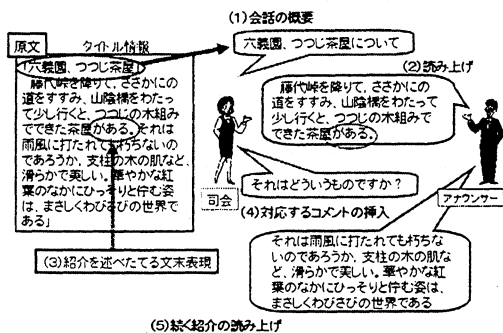 (1)会話の概要
原文
タイトル情報
「六義園、つつじ茶屋」
藤代峠を降りて、ささかにの
道をすすみ、山陰橋をわたっ
て少し行くと、つつじの木組み
でできた茶屋がある。それは
雨風に打たれても朽ちないの
であろうか、支柱の木の肌など、
滑らかで美しい。華やかな紅
葉のなかにひっそりと佇む姿
は、まさしくわびさびの世界で
ある」
(3)紹介を述べたてる文末表現
六義園、つつじ茶屋について
(2)読み上げ
藤代峠を降りて、ささかにの
道をすすみ、山陰橋をわたって
少し行くと、つつじの木組みで
できた茶屋がある。
司会
それはどういうものですか?
アナウンサー
(4)対応するコメントの挿入
それは雨風に打たれても朽ちな
いのであろうか、支柱の木の肌な
ど、滑らかで美しい。華やかな紅
葉のなかにひっそりと佇む姿は、
まさしくわびさびの世界である
(5)続く紹介の読み上げ